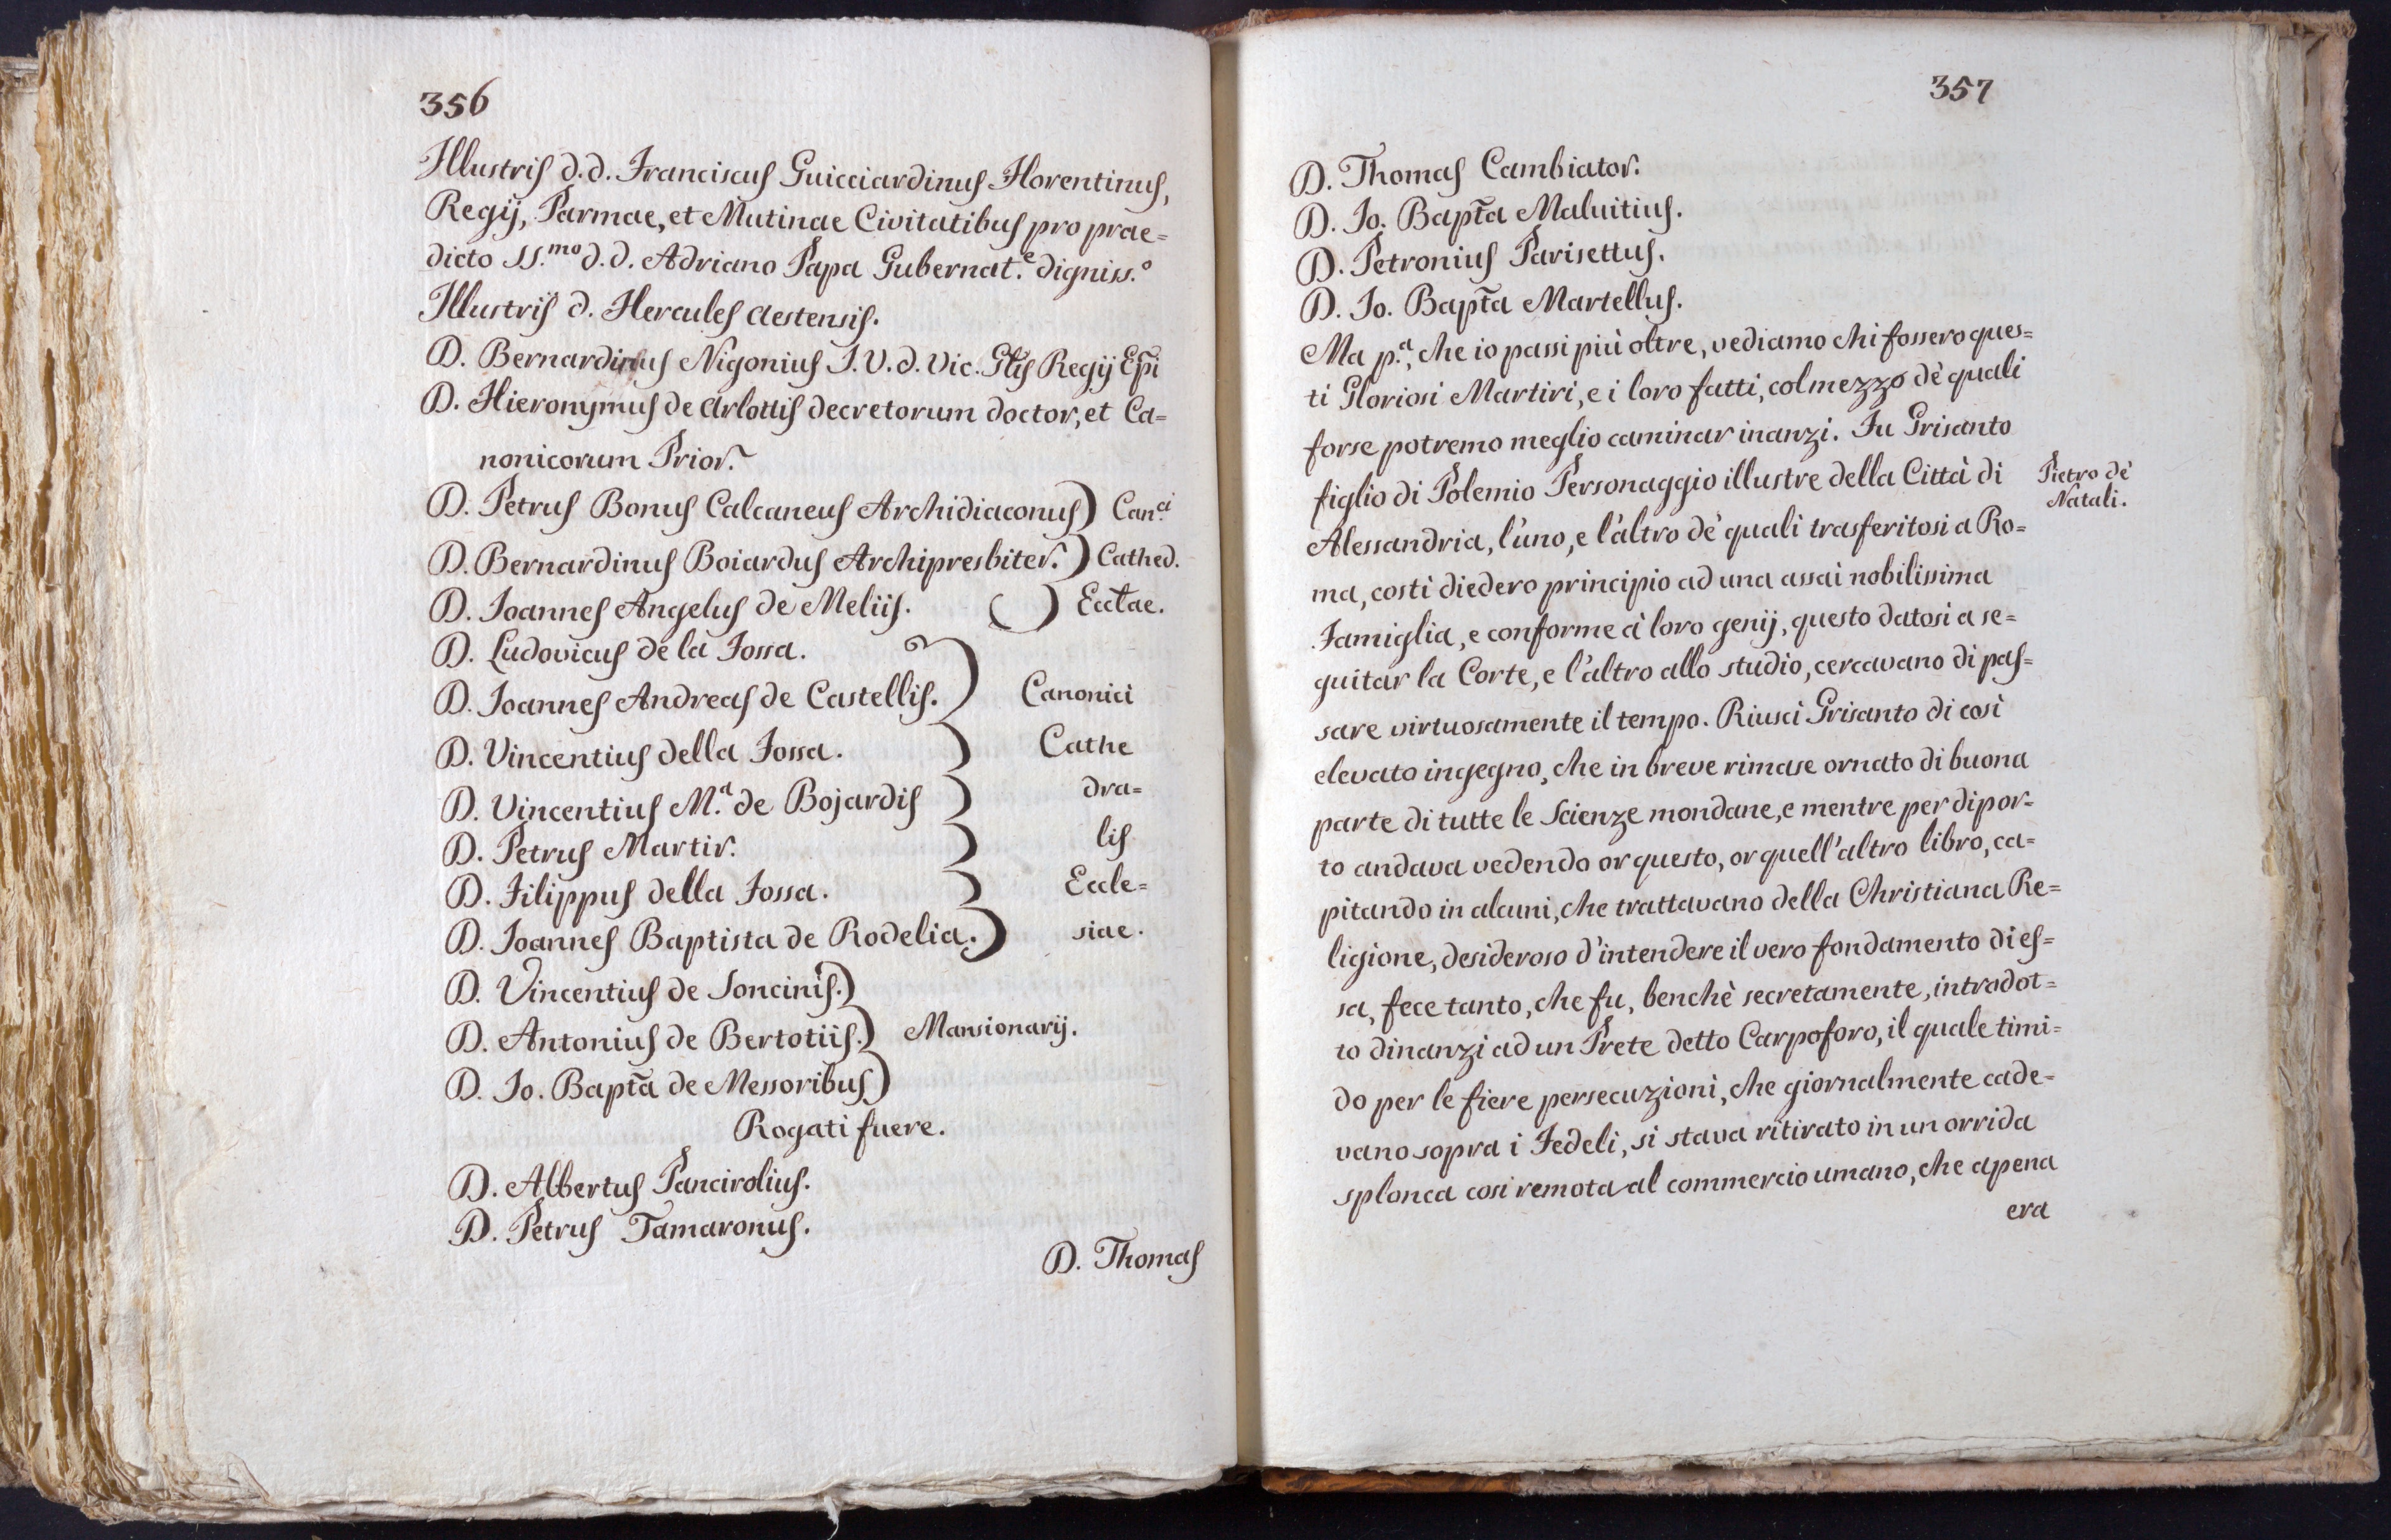 356
Illustris d. d. Franciscus Guicciardinus Florentinus,
Regij, Parmae, et Mutinae Civitatibus pro prae=
dicto SS.mo d. d. Adriano Papa Gubernat.e digniss.o
Illustris d. Hercules Aestensis.
D. Bernardinus Nigonius I. V. d. Vic. Glis Regij Epi
D. Hieronymus de Arlottis decretorum doctor, et Ca=
nonicorum Prior.
D. Petrus Bonus Calcaneus Archidiaconus) Can.ci
D. Bernardinus Boiardus Archipresbiter.) Cathed.
D. Joannes Angelus de Meliis. ( ) Ecclae.
D. Ludovicus de la Fossa.
D. Joannes Andreas de Castellis.) Canonici
D. Vincentius della Fossa. ) Cathe
D. Vincentius M.a de Bojardis ) dra=
D. Petrus Martir. ) lis
D. Filippus della Fossa. ) Eccle=
D. Joannes Baptista de Rodelia.) siae.
D. Vincentius de Soncinis.)
D. Antonius de Bertotiis.) Mansionarij.
D. Jo. Bapta de Messoribus)
Rogati fuere.
D. Albertus Pancirolius.
D. Petrus Tamaronus.
D. Thomas
357
D. Thomas Cambiator.
D. Jo. Bapta Maluitius.
D. Petronius Parisettus.
D. Jo. Bapta Martellus.
Ma p.a, che io passi più oltre, vediamo chi fossero ques=
ti Gloriosi Martiri, e i loro fatti, col mezzo de' quali
forse potremo meglio caminar inanzi. Fu Grisanto
figlio di Polemio Personaggio illustre della Città di
Pietro de'
Natali.
Alessandria, l'uno, e l'altro de' quali trasferitosi a Ro=
ma, costì diedero principio ad una assai nobilissima
Famiglia, e conforme ai loro genij, questo datosi a se=
guitar la Corte, e l'altro allo studio, cercavano di pas=
sare virtuosamente il tempo. Riuscì Grisanto di così
elevato ingegno, che in breve rimase ornato di buona
parte di tutte le Scienze mondane, e mentre per dipor=
to andava vedendo or questo, or quell'altro libro, ca=
pitando in alcuni, che trattavano della Christiana Re=
ligione, desideroso d'intendere il vero fondamento di es=
sa, fece tanto, che fu, benchè secretamente, introdot=
to dinanzi ad un Prete detto Carpoforo, il quale timi=
do per le fiere persecuzioni, che giornalmente cade=
vano sopra i Fedeli, si stava ritirato in un orrida
splonca così remota al commercio umano, che apena
era